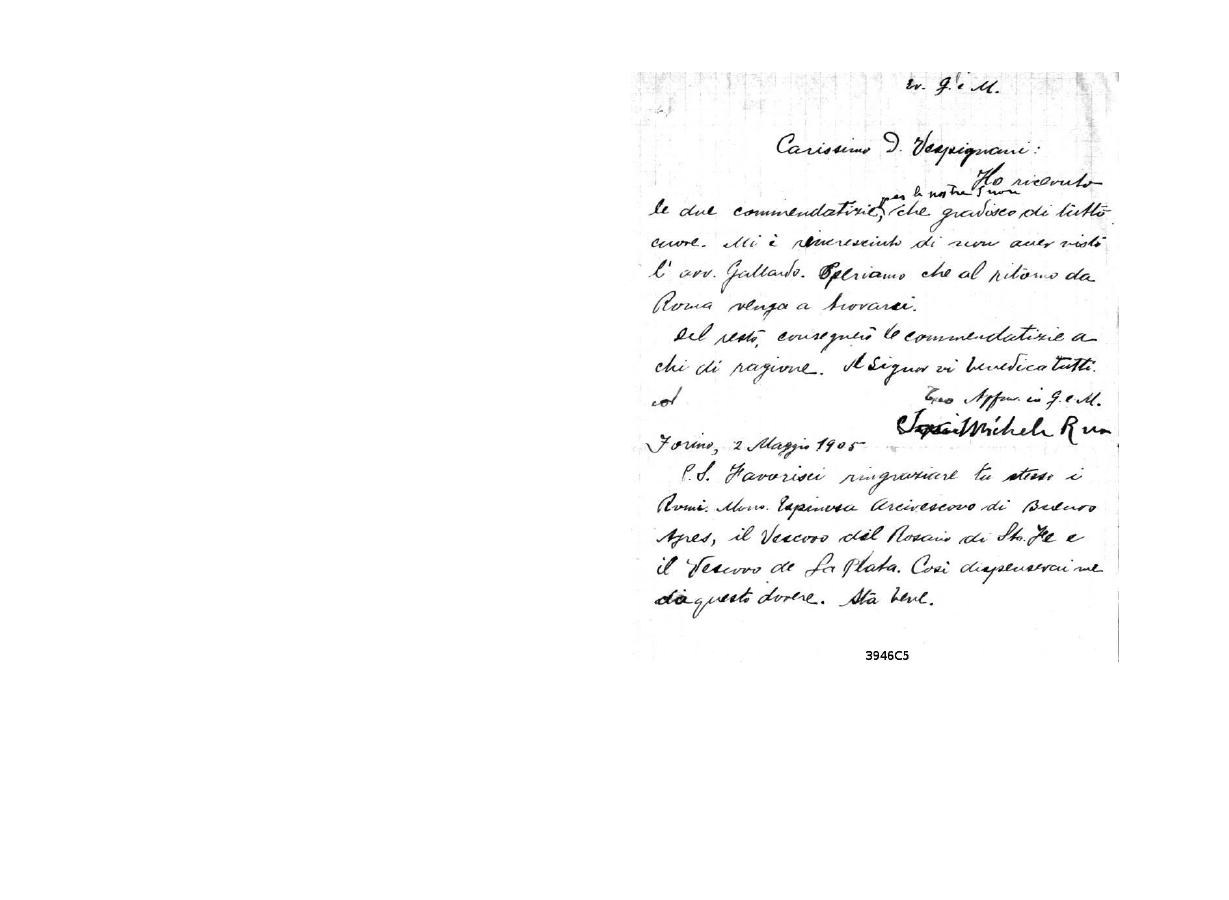 Ev. G. e M.
Carissimo D. Vespignani:
Ho ricevuto
per le nostre Suore
le due commendatizie, che gradisco di tutto
cuore. Mi è rincresciuto di non aver visto
l'avv. Gallardo. Speriamo che al ritorno da
Roma venga a trovarci.
Del resto, consegnerò le commendatizie a
chi di ragione. Il Signor vi benedica tutti.
Tuo Affmo. in G. e M.
Michele Rua
Torino, 2 Maggio 1905
P.S. Favorisci ringraziare tu stesso i
Rvmi. Mons. Espinosa Arcivescovo di Buenos
Ayres, il Vescovo del Rosario di Sta. Fe e
il Vescovo de La Plata. Così dispenserai me
da questo dovere. Sta bene.
3946C5